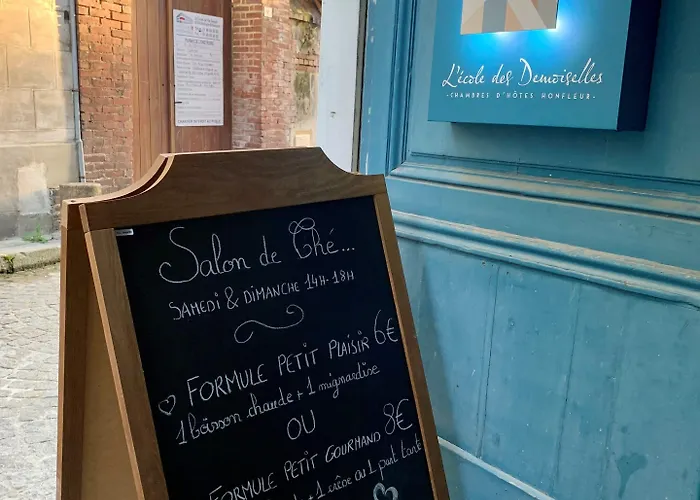 L'école des Demoiselles
- CHAMBRES D'HÔTES HONFLEUR -
Salon de Thé...
SAMEDI & DIMANCHE 14H-18H
FORMULE PETIT PLAISIR 6€
1 boisson chaude + 1 mignardise
OU
FORMULE PETIT GOURMAND 8€
+ 1 crêpe ou 1 part tarte